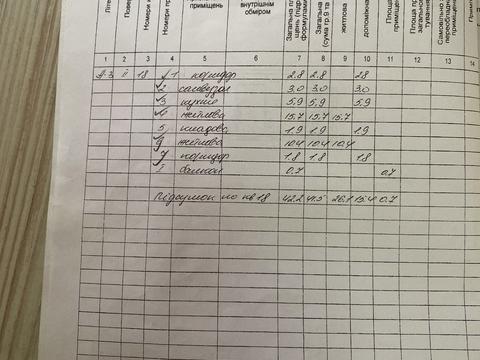 приміщень
внутрішнім
обміром
Загальна
(сума гр.9 та
житлова
1 2 3 4 5 6 7 8 9 10 11 12 13 14
А-3 ІІ 18 1 коридор 2.8 2.8 2.8
2 санвузол 3.0 3.0 3.0
3 кухня 5.9 5.9 5.9
4 житлова 15.7 15.7 15.7
5 кладова 1.9 1.9 1.9
житлова 10.4 10.4 10.4
7 коридор 1.8 1.8 1.8
балкон 0.7 0.7
Підсумок по кв 18 42.2 41.5 26.1 15.4 0.7